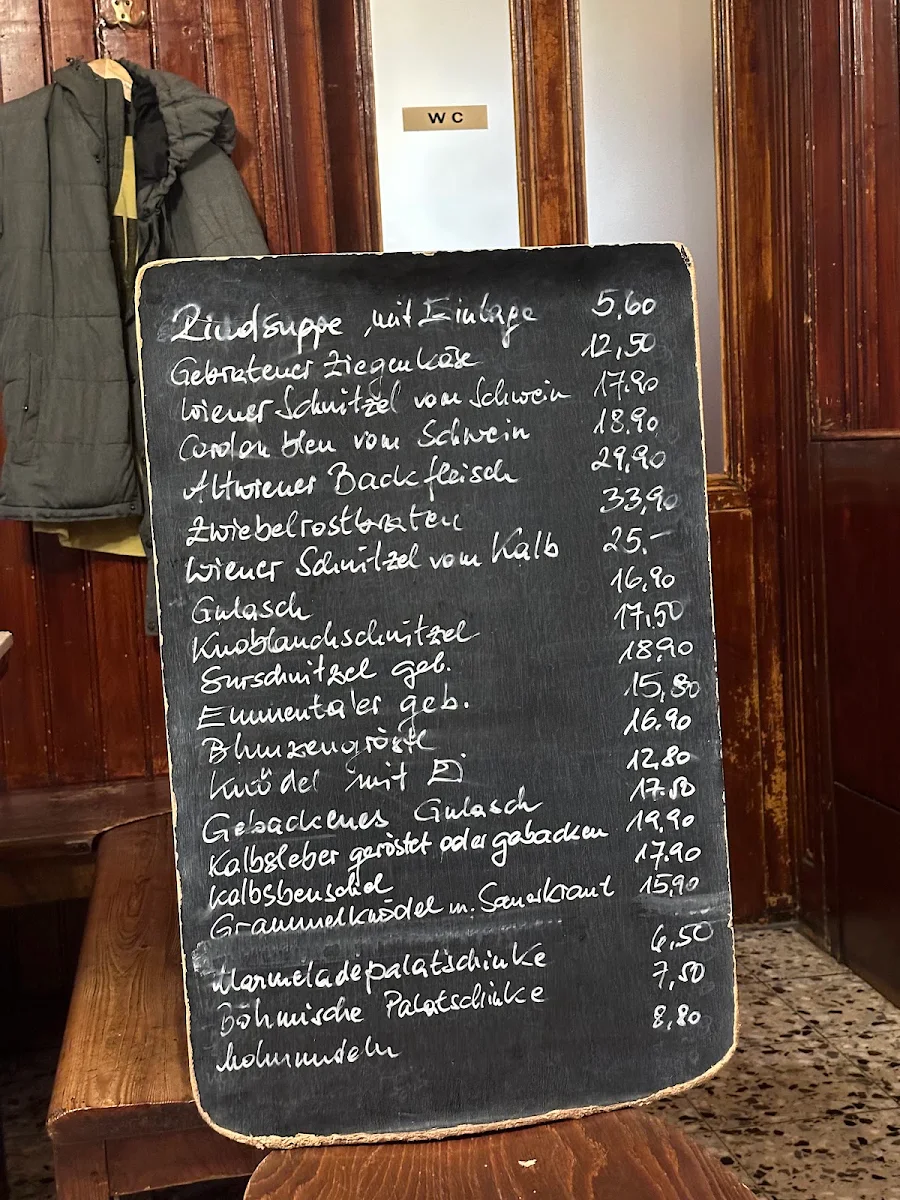 WC
Rindsuppe mit Einlage 5,60
Gebratener Ziegenkäse 12,50
Wiener Schnitzel vom Schwein 17.90
Cordon bleu vom Schwein 18.90
Altwiener Backfleisch 29,90
Zwiebelrostbraten 33,90
Wiener Schnitzel vom Kalb 25.-
Gulasch 16,90
Knoblauchschnitzel 17,50
Surschnitzel geb. 18,90
Emmentaler geb. 15,80
Blunzengröstl 16.90
Knödel mit Ei 12,80
Gebackenes Gulasch 17.50
Kalbsleber geröstet oder gebacken 19,90
Kalbsbeuschel 17.90
Grammelknödel m. Sauerkraut 15,90
Marmeladepalatschinke 6,50
Böhmische Palatschinke 7,50
Mohnnudeln 8,80